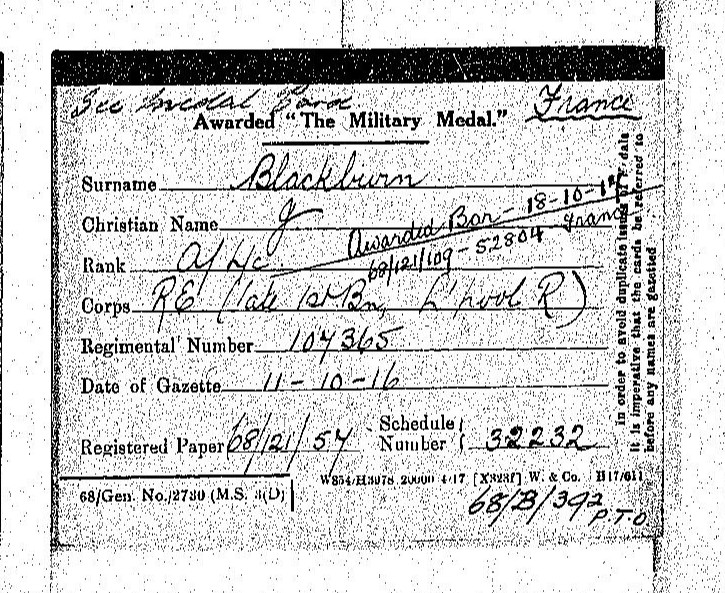 See Medal Card France
Awarded "The Military Medal."
Surname Blackburn
Christian Name J
Awarded Bar - 18-10-17 France
68/121/109 - 52804
Rank A/ L/c
Corps RE (late 1st Bn, L'pool R)
Regimental Number 107365
Date of Gazette 11 - 10 - 16
Registered Paper 68/121/57 Schedule Number 32232
68/Gen. No./2730 (M.S. 3(D)
W854/H3978 20000 4/17 [X323f] W. & Co. H17/611
68/B/392
P.T.O
In order to avoid duplicate issues of Medals
it is imperative that the cards be referred to
before any names are gazetted